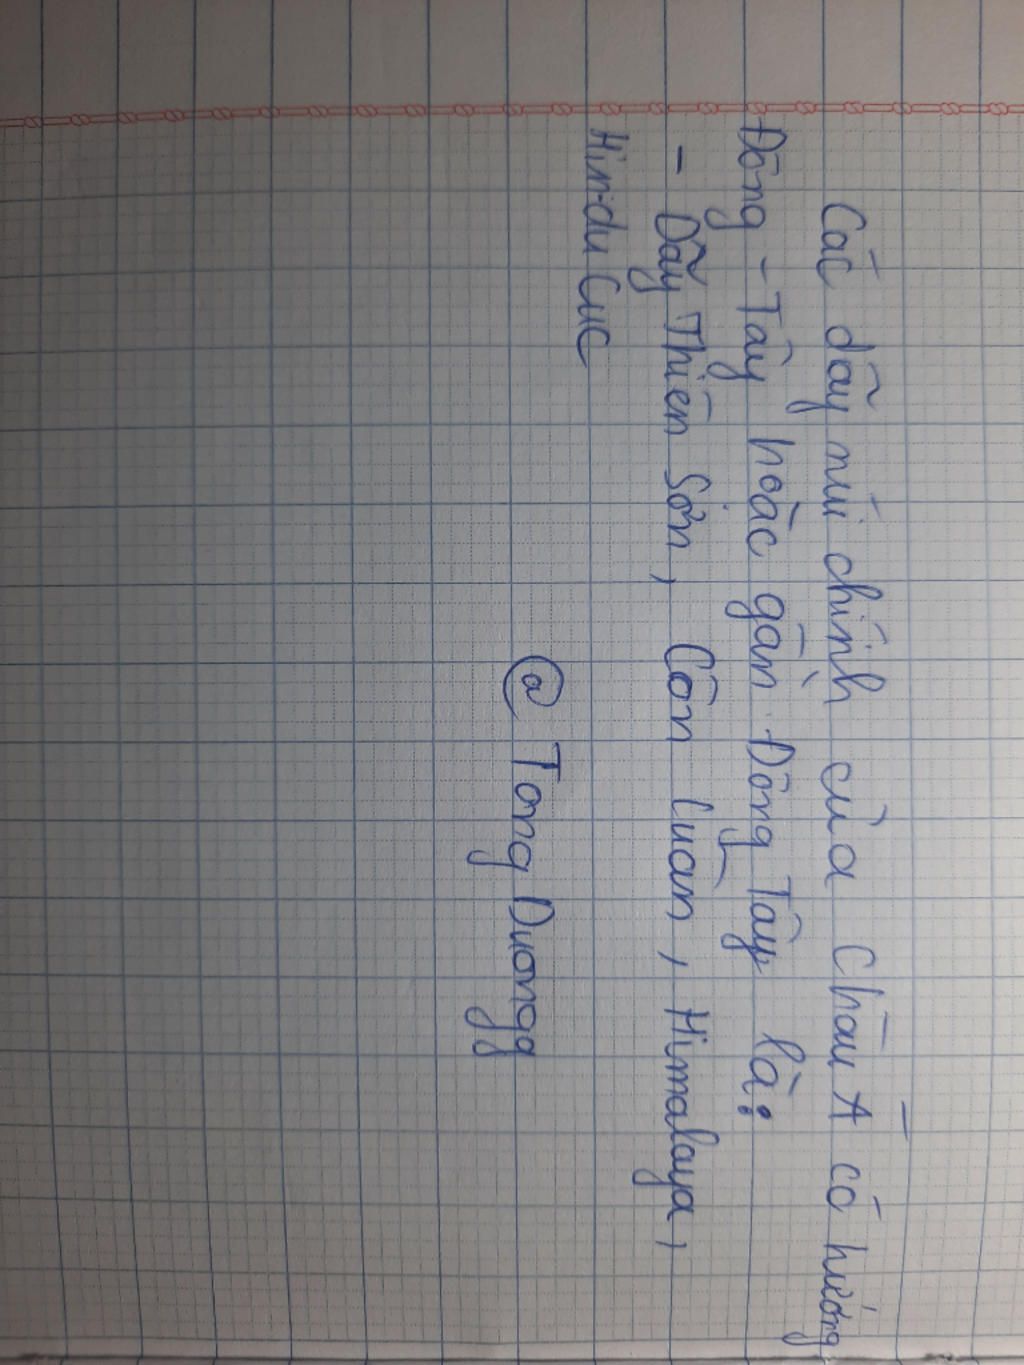 Các dãy núi chính của Châu Á có hướng
Đông - Tây hoặc gần Đông Tây là:
- Dãy Thiên Sơn, Côn Luân, Himalaya,
Hin-du Cuc
@ Tong Duongg